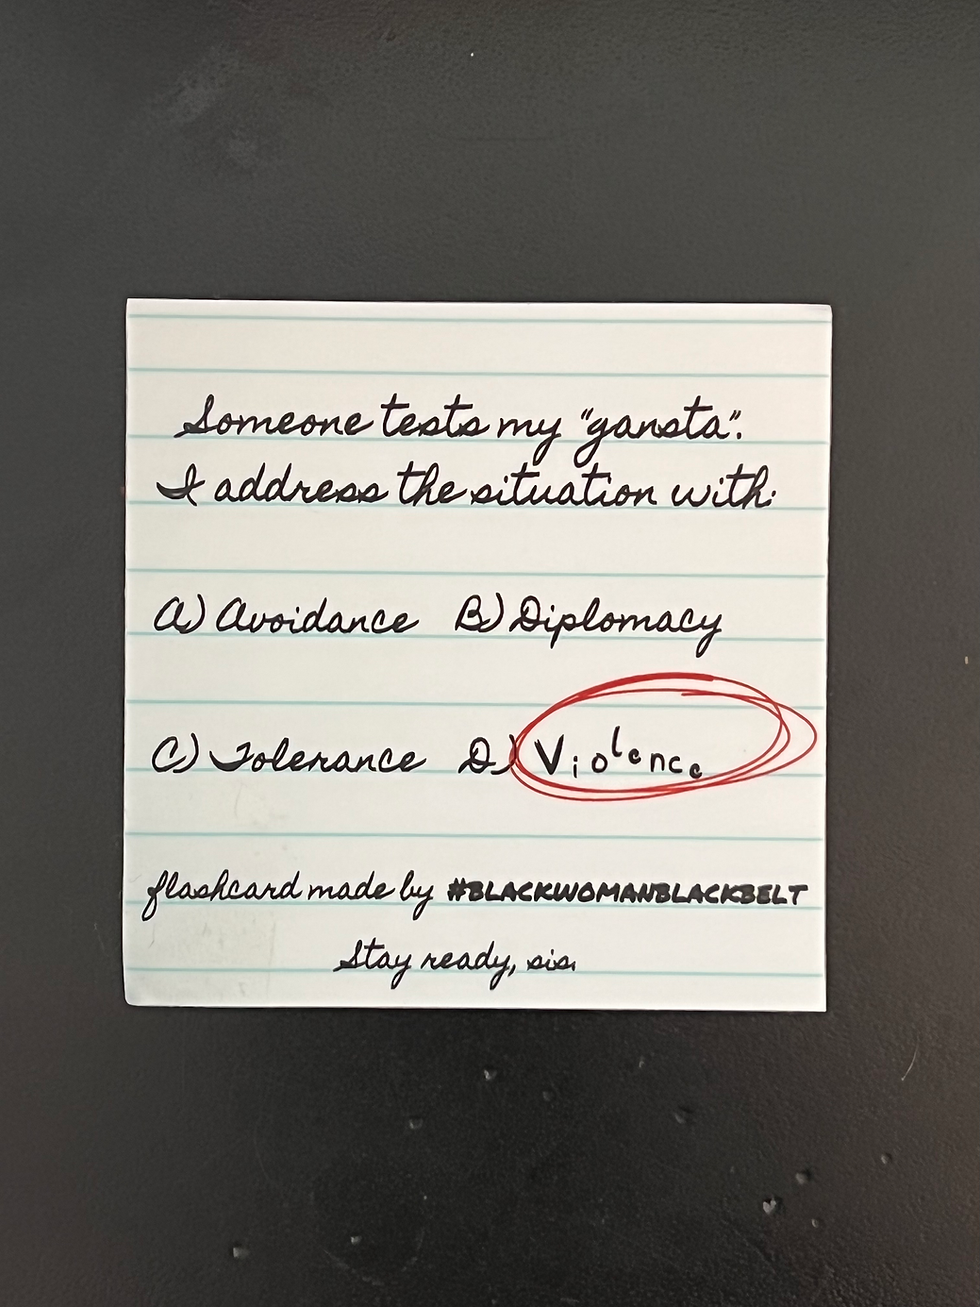 Someone tests my "gansta".
I address the situation with:
A) Avoidance B) Diplomacy
C) Tolerance D.) Violence
flashcard made by #BLACKWOMANBLACKBELT
Stay ready, sis.